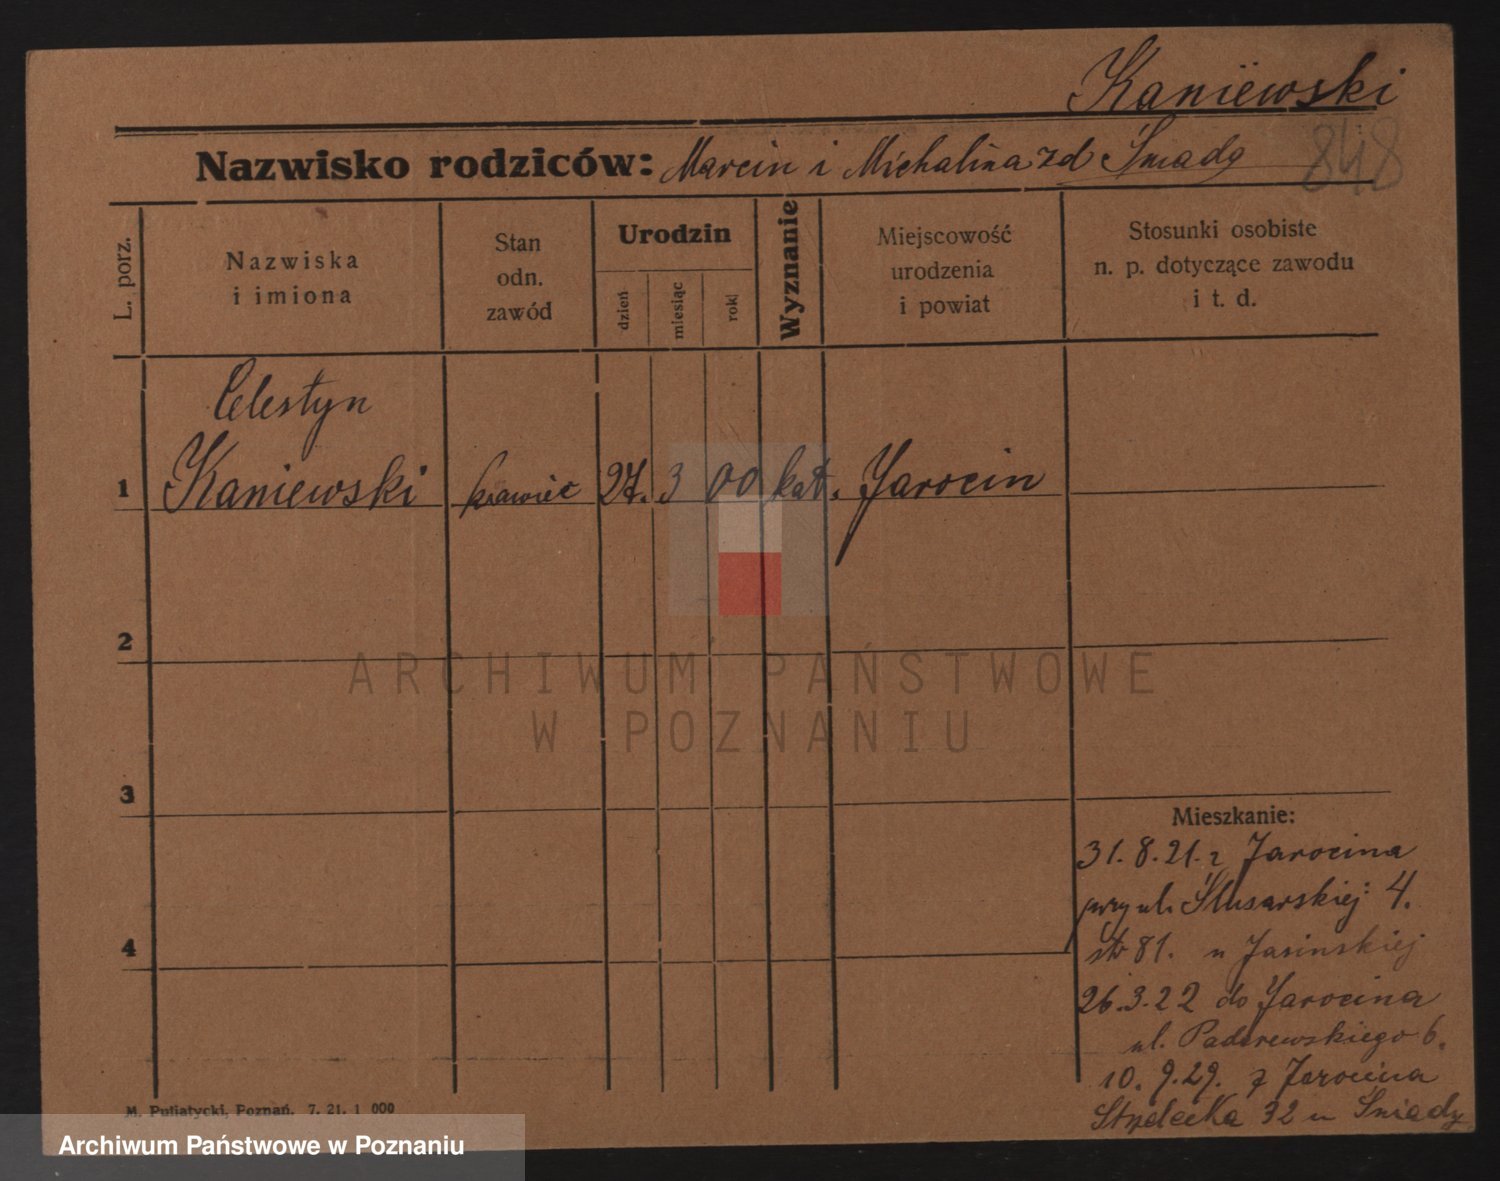 Kaniewski
Nazwisko rodziców: Marcin i Michalina zd Śniada
848
L. porz.
Nazwiska
i imiona
Stan
odn.
zawód
Urodzin
dzień
miesiąc
rok
Wyznanie
Miejscowość
urodzenia
i powiat
Stosunki osobiste
n. p. dotyczące zawodu
i t. d.
Celestyn
1 Kaniewski krawiec 27. 3 00 kat. Jarocin
2
3
4
Mieszkanie:
31.8.21. z Jarocina
przy ul. Ślusarskiej 4.
str 81. u Jasinskiej
26.3.22 do Jarocina
ul. Paderewskiego 6.
10. 9.29. z Jarocina
32 u Śniady
M. Putiatycki, Poznań. 7. 21. 1 000
ARCHIWUM PAŃSTWOWE
W POZNANIU
Archiwum Państwowe w Poznaniu